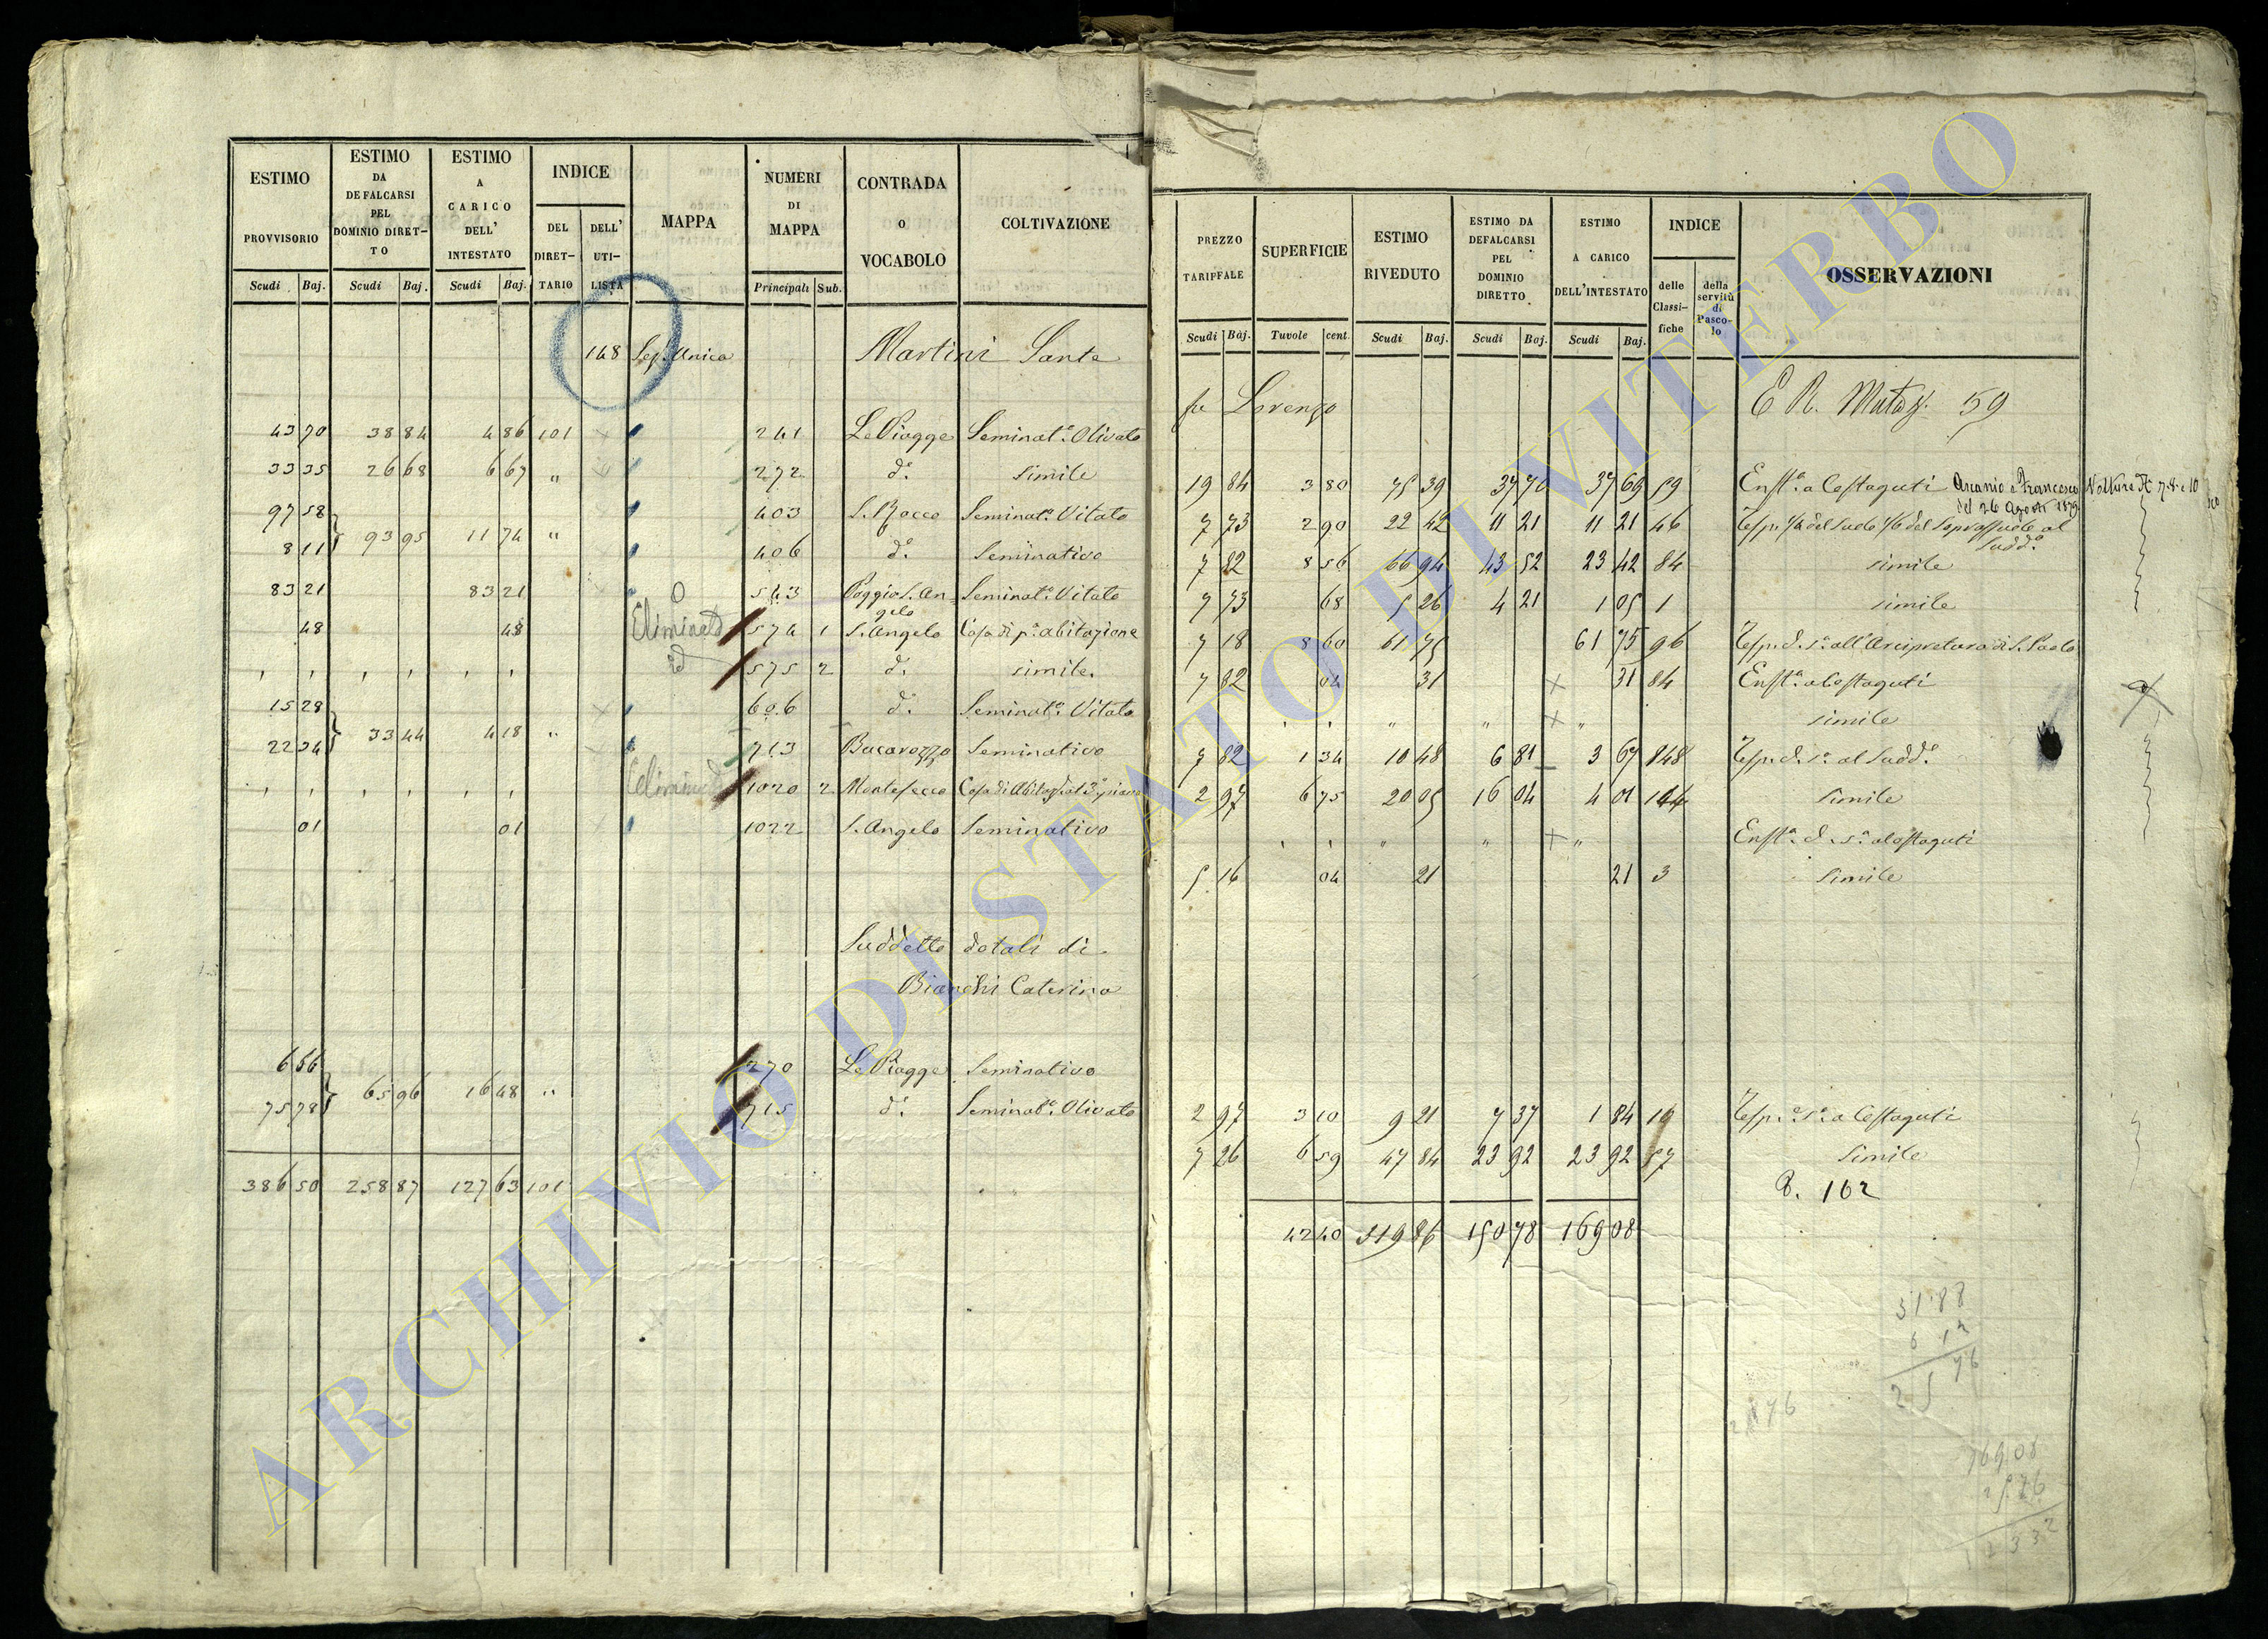 ESTIMO PROVVISORIO Scudi Baj.
ESTIMO DA DEFALCARSI PEL DOMINIO DIRETTO Scudi Baj.
ESTIMO A CARICO DELL' INTESTATO Scudi Baj.
INDICE DEL DIRETTARIO DELL' UTILISTA
MAPPA
NUMERI DI MAPPA Principali Sub.
CONTRADA o VOCABOLO
COLTIVAZIONE
148 Sez. Unica Martini Sante
43 70 38 84 4 86 101 241 Le Piagge Seminato. Olivato
33 35 26 68 6 67 " 272 do. simile
97 58 403 S. Rocco Seminato. Vitato
93 95 11 74 "
8 11 406 do. Seminativo
83 21 83 21 543 Poggio S. Angelo Seminato. Vitato
48 48 Eliminato 574 1 S. Angelo Casa di pa. abitazione
575 2 do. simile.
15 28 606 do. Seminato. Vitato
33 44 4 18 "
22 34 713 Bucavozzo Seminativo
Eliminato 1020 2 Montesecco
01 01 1022 S. Angelo Seminativo
Suddetto dotali di
Bianchi Caterina
6 66 270 Le Piagge Seminativo
65 96 16 48 "
75 78 715 do. Seminato. Olivato
386 50 258 87 127 63 101
PREZZO TARIFFALE Scudi Baj.
SUPERFICIE Tavole cent.
ESTIMO RIVEDUTO Scudi Baj.
ESTIMO DA DEFALCARSI PEL DOMINIO DIRETTO Scudi Baj.
ESTIMO A CARICO DELL'INTESTATO Scudi Baj.
INDICE delle Classifiche della servitù di Pascolo
OSSERVAZIONI
fu Lorenzo E R. Mutaz. 59
19 84 3 80 75 39 37 70 37 69 59 Enfta. a Costaguti Ascanio e Francesco Volture N 7. 8. e 10
del 26 Agosto 1879
7 73 2 90 22 42 11 21 11 21 46 al Suddo.
7 82 8 56 66 94 43 52 23 42 84 simile
7 73 68 5 26 4 21 1 05 1 simile
7 18 8 60 61 75 61 75 96 Resp. d. sa. all'Arcipretura di S. Paolo
7 82 04 31 31 84 Enfta. a Costaguti
simile
7 82 1 34 10 48 6 81 3 67 848 Resp. d. sa. al Suddo.
2 97 6 75 20 05 16 04 4 01 144 simile
Enfta. d. sa. a Costaguti
5 16 04 21 21 3 simile
2 97 3 10 9 21 7 37 1 84 19 a Costaguti
7 26 6 59 47 84 23 92 23 92 57 simile
162
42 40 319 86 150 78 169 08
31 88
6 12
25 76
25 76
169 08
25 76
ARCHIVIO DI STATO DI VITERBO